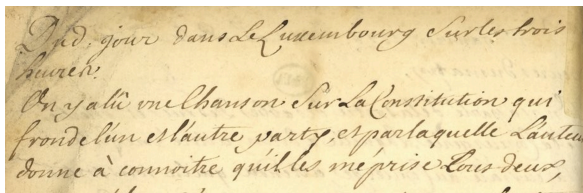 Dud. jour dans Le Luxembourg Sur les trois
heures.
On y a lû vne Chanson Sur La Constitution qui
fronde l'un et l'autre party, et par laquelle L'auteu
donne à connoitre qu'il les méprise tous deux,